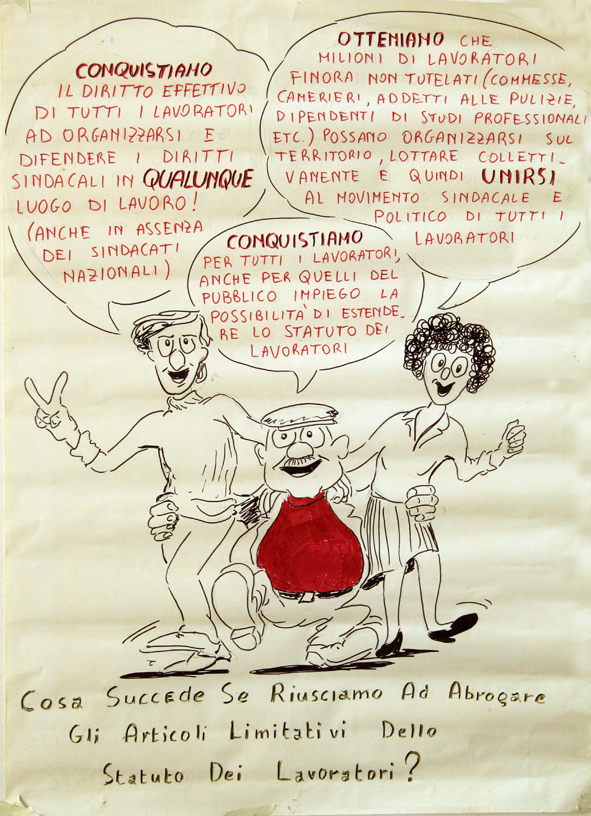 CONQUISTIAMO
IL DIRITTO EFFETTIVO
DI TUTTI I LAVORATORI
AD ORGANIZZARSI E
DIFENDERE I DIRITTI
SINDACALI IN QUALUNQUE
LUOGO DI LAVORO!
(ANCHE IN ASSENZA
DEI SINDACATI
NAZIONALI)
OTTENIAMO CHE
MILIONI DI LAVORATORI
FINORA NON TUTELATI (COMMESSE,
CAMERIERI, ADDETTI ALLE PULIZIE,
DIPENDENTI DI STUDI PROFESSIONALI
ETC.) POSSANO ORGANIZZARSI SUL
TERRITORIO, LOTTARE COLLETTI-
VANENTE E QUINDI UNIRSI
AL MOVIMENTO SINDACALE E
POLITICO DI TUTTI I
LAVORATORI
CONQUISTIAMO
PER TUTTI I LAVORATORI,
ANCHE PER QUELLI DEL
PUBBLICO IMPIEGO LA
POSSIBILITÀ DI ESTENDE-
RE LO STATUTO DEI
LAVORATORI
Cosa Succede Se Riusciamo Ad Abrogare
Gli Articoli Limitativi Dello
Statuto Dei Lavoratori?